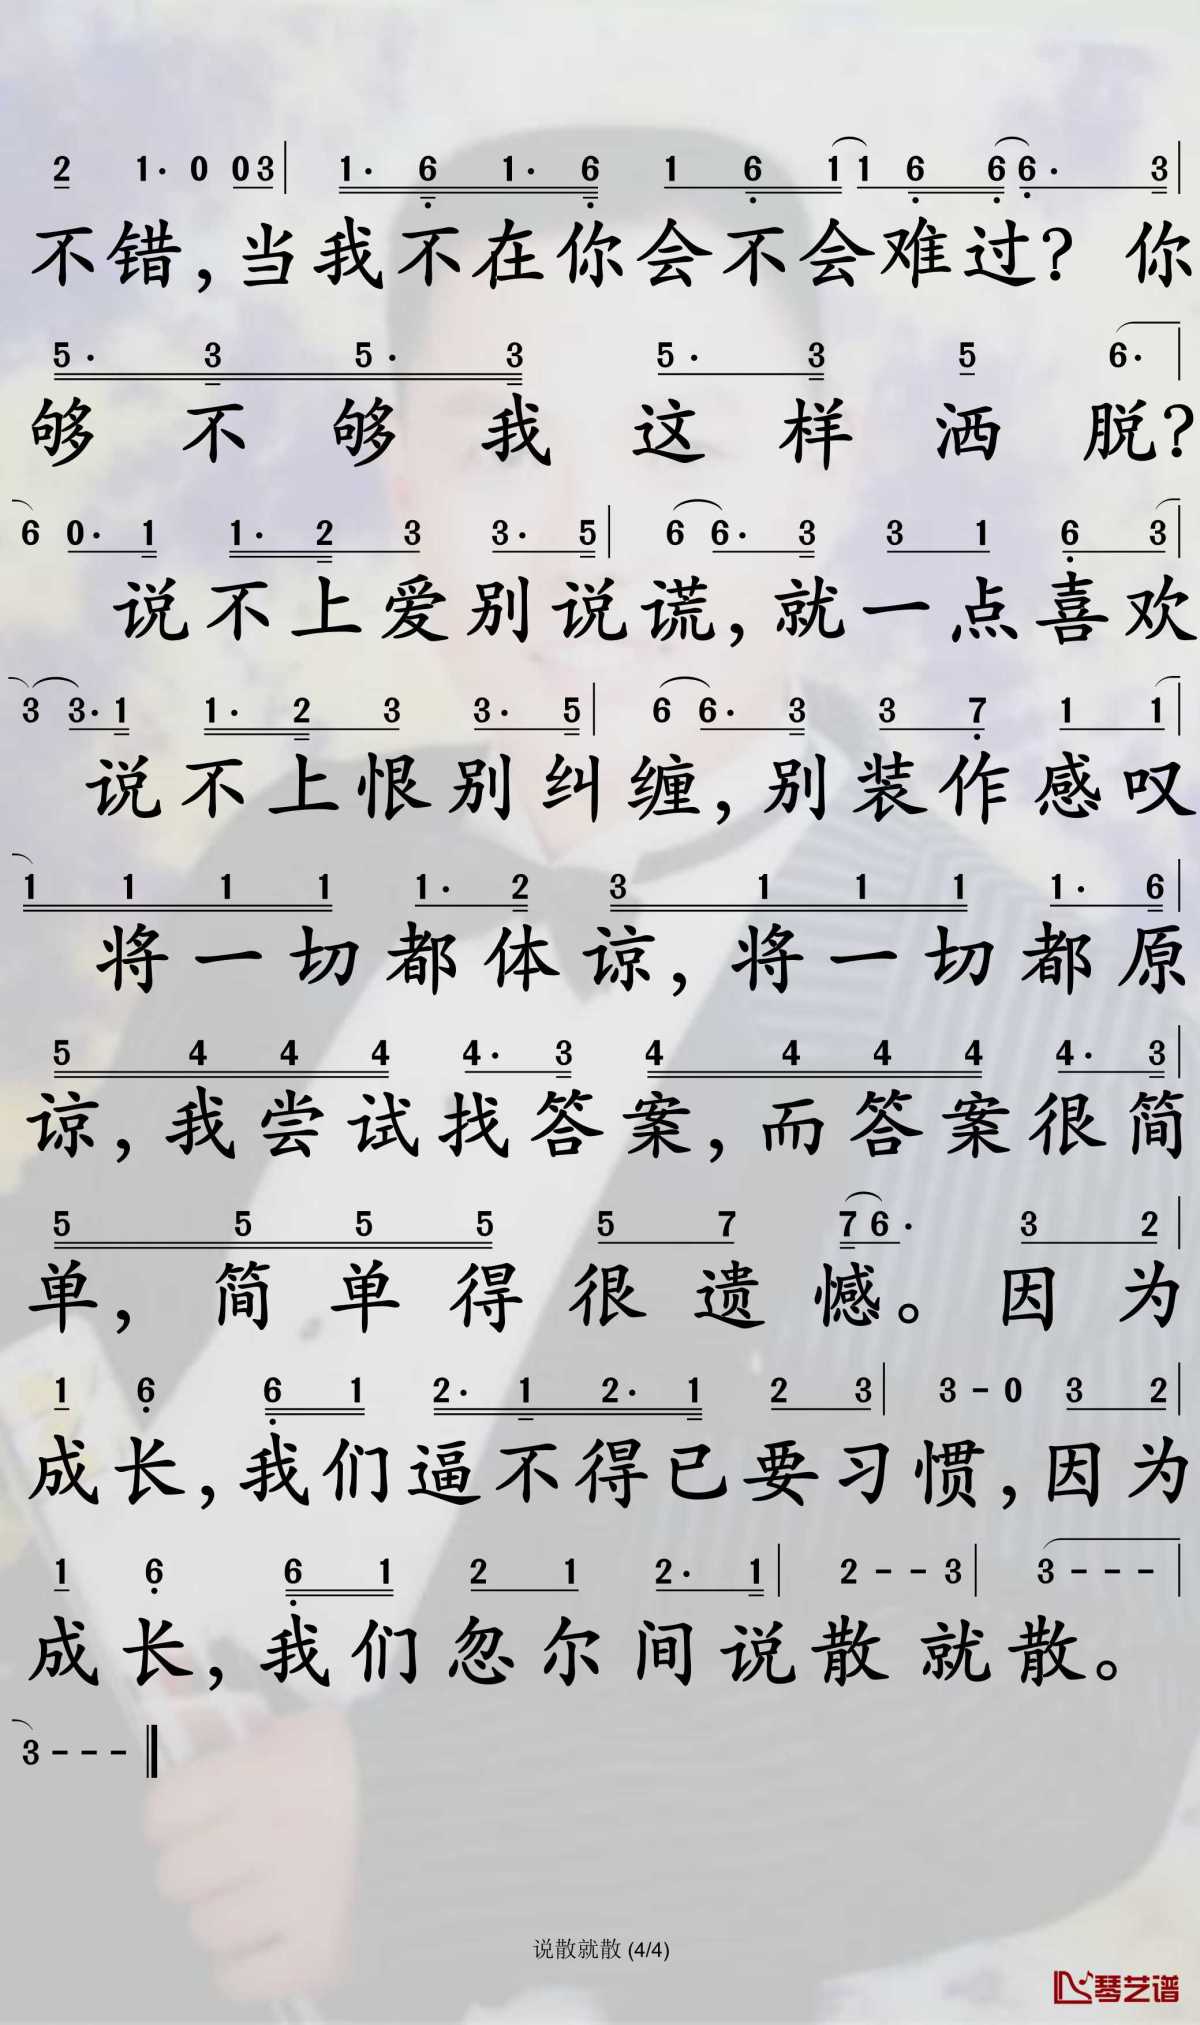 2 1· 0 03 | 1· 6 1· 6 1 6 11 6 66· 3 |
不错,当我不在你会不会难过? 你
5· 3 5· 3 5· 3 5 6· |
够不够我这样洒脱?
6 0· 1 1· 2 3 3· 5 | 6 6· 3 3 1 6 3 |
说不上爱别说谎,就一点喜欢
3 3· 1 1· 2 3 3· 5 | 6 6· 3 3 7 1 1 |
说不上恨别纠缠,别装作感叹
1 1 1 1 1· 2 3 1 1 1 1· 6 |
将一切都体谅,将一切都原
5 4 4 4 4· 3 4 4 4 4 4· 3 |
谅,我尝试找答案,而答案很简
5 5 5 5 5 7 7 6· 3 2 |
单,简单得很遗憾。因为
1 6 6 1 2· 1 2· 1 2 3 | 3 - 0 3 2 |
成长,我们逼不得已要习惯,因为
1 6 6 1 2 1 2· 1 | 2 - - 3 | 3 - - - |
成长,我们忽尔间说散就散。
3 - - - ||
说散就散 (4/4)
琴艺谱